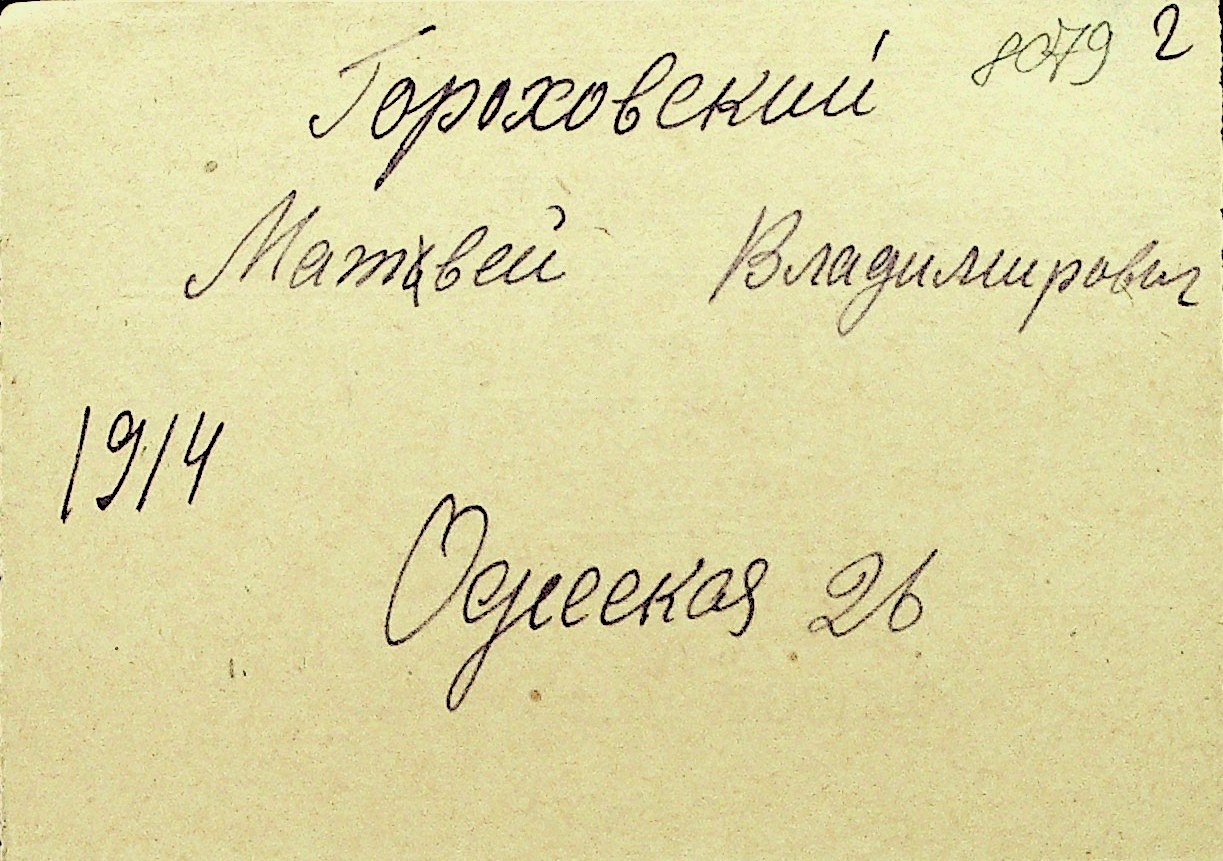 8079 2
Гороховский
Матвей Владимирович
1914
Одесская 26